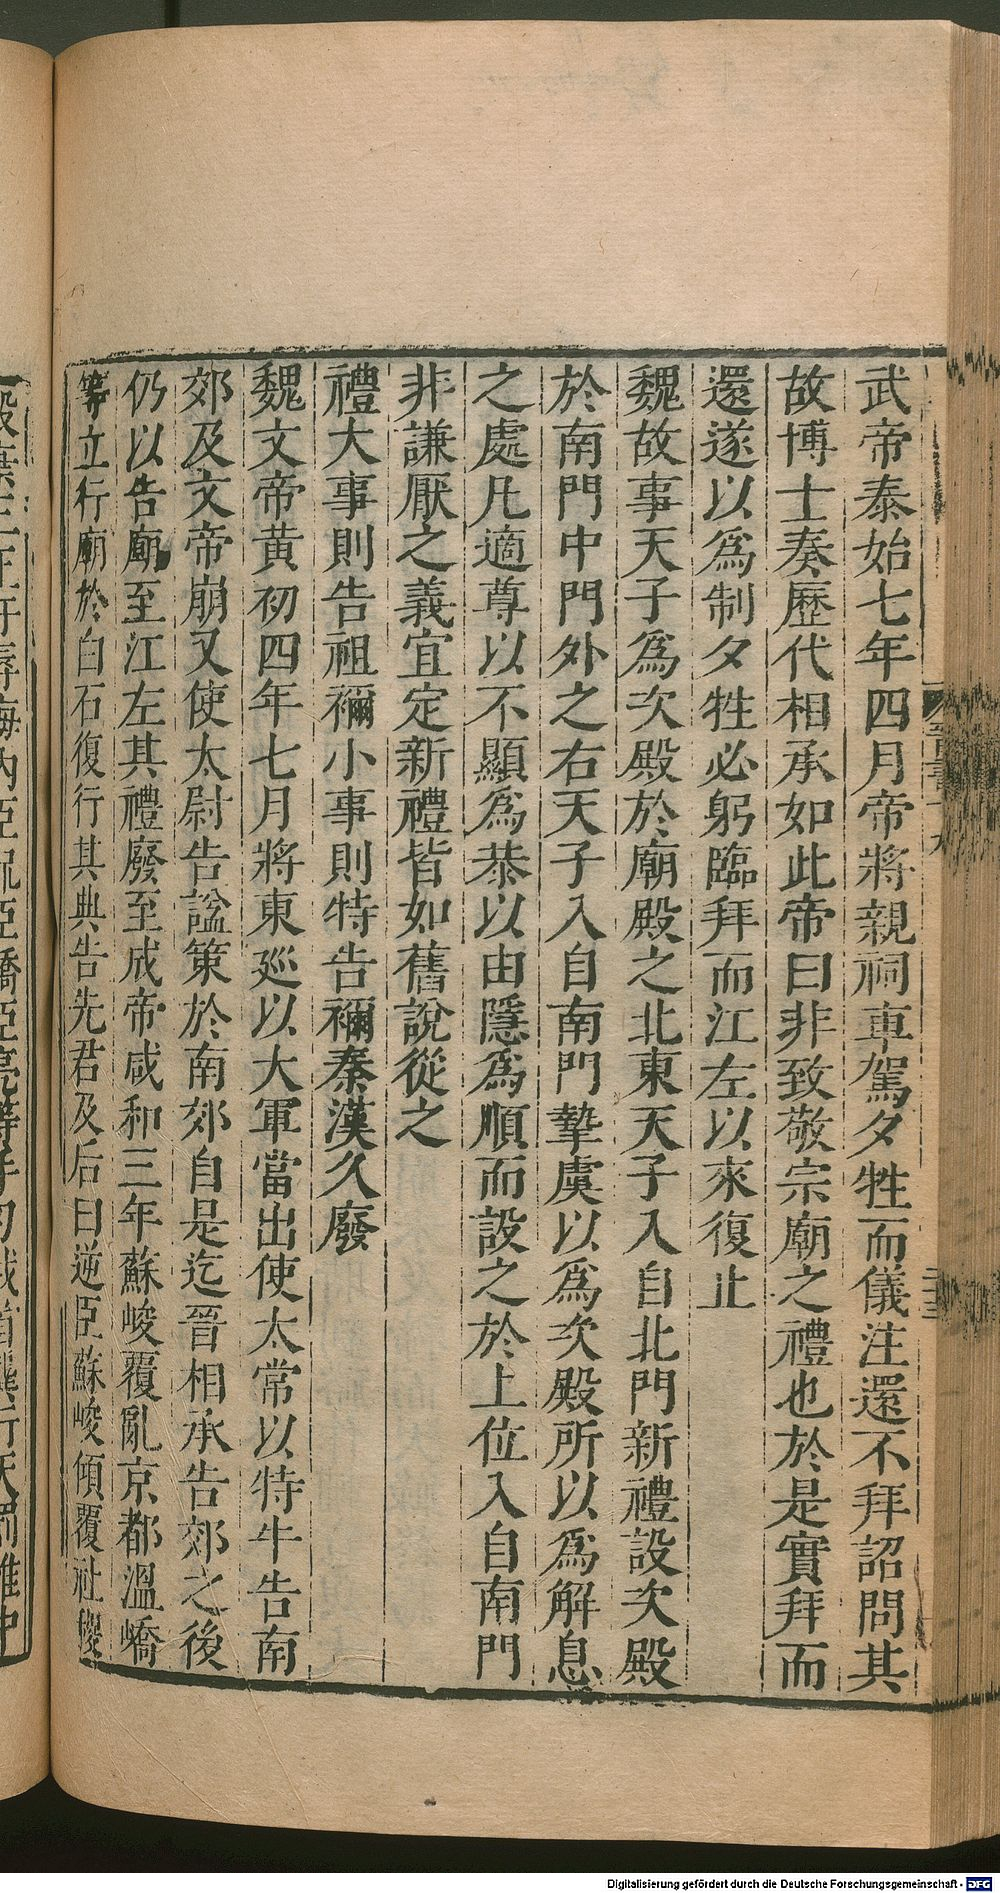 武帝泰始七年四月帝將親祠車駕夕牲而儀注還不拜詔問其
故博士奏歷代相承如此帝曰非致敬宗廟之禮也於是實拜而
還遂以爲制夕牲必躬臨拜而江左以來復止
魏故事天子爲次殿於廟殿之北東天子入自北門新禮設次殿
於南門中門外之右天子入自南門摯虞以爲次殿所以爲解息
之處凡適尊以不顯爲恭以由隱爲順而設之於上位入自南門
非謙厭之義宜定新禮皆如舊說從之
禮大事則告祖禰小事則特告禰秦漢久廢
魏文帝黃初四年七月將東巡以大軍當出使太常以特牛告南
郊及文帝崩又使太尉告諡策於南郊自是迄晉相承告郊之後
仍以告廟至江左其禮廢至成帝咸和三年蘇峻覆亂京都溫嶠
等立行廟於白石復行其典告先君及后曰逆臣蘇峻傾覆社稷
Digitalisierung gefördert durch die Deutsche Forschungsgemeinschaft - DFG